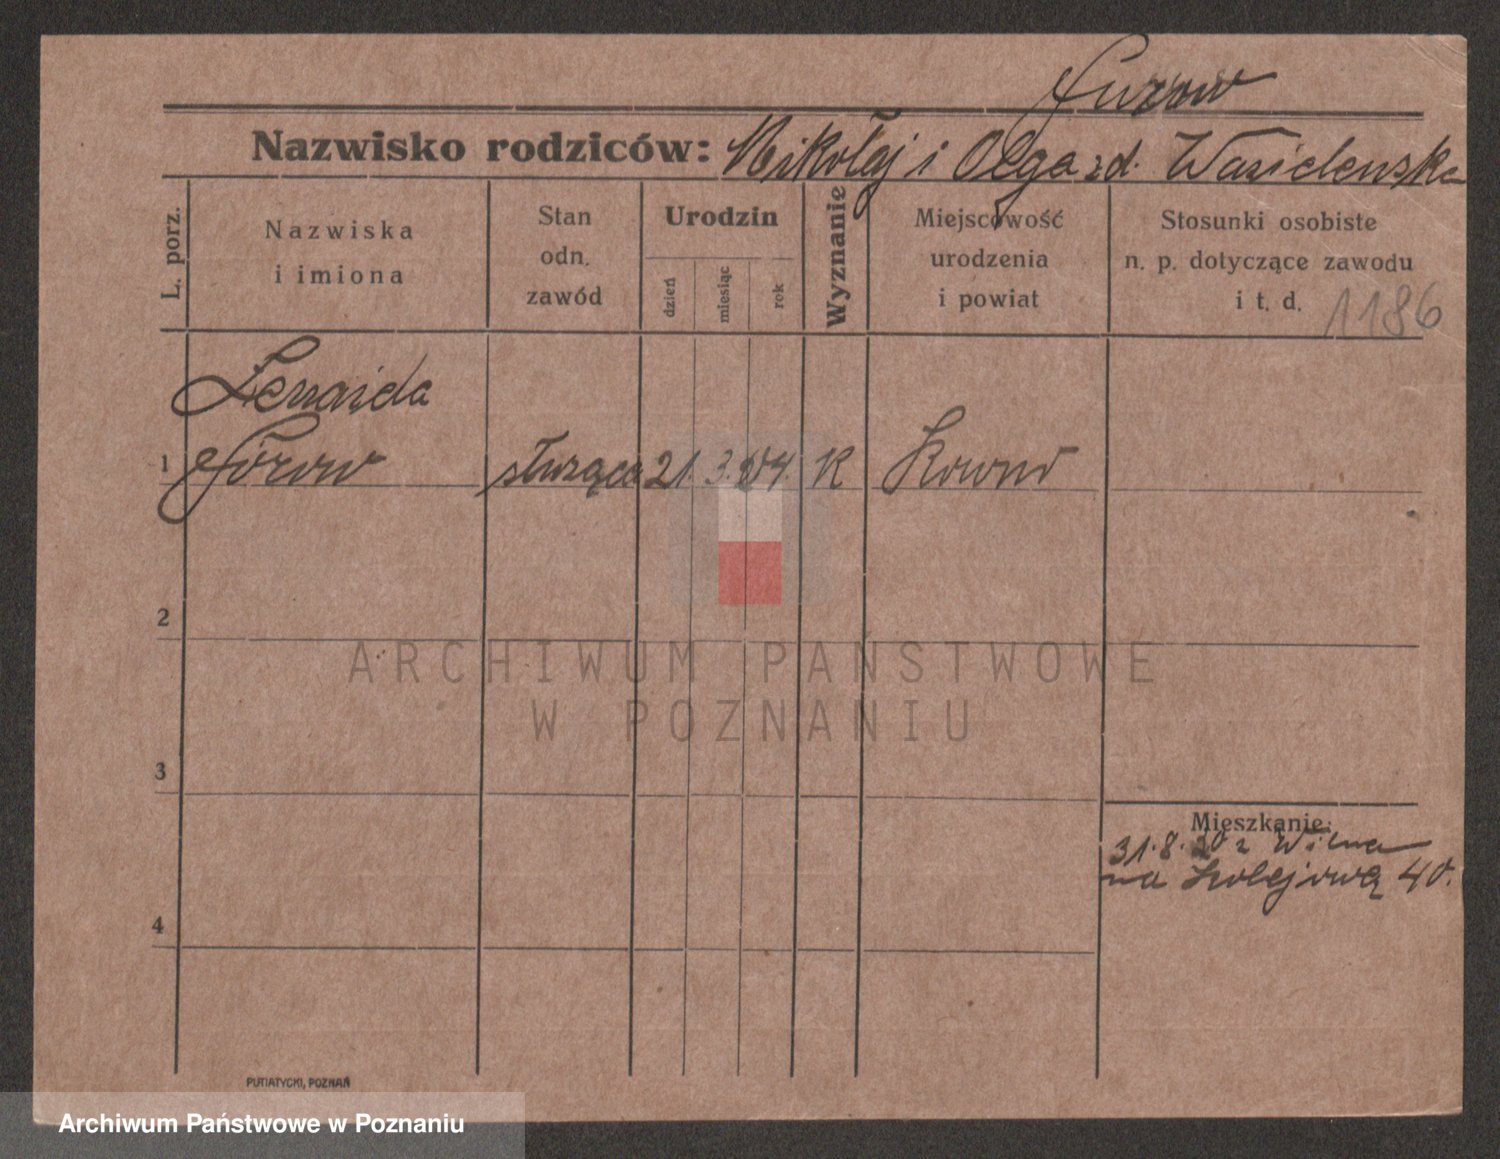 Nazwisko rodziców: Mikołaj i Olga zd. Wasielewska
L. porz.
Nazwiska
i imiona
Stan
odn.
zawód
Urodzin
dzień
miesiąc
rok
Wyznanie
Miejscowość
urodzenia
i powiat
Stosunki osobiste
n. p. dotyczące zawodu
i t. d.
1186
Zenaida
1 służąca 21. 3. 04. K Kowno
2
ARCHIWUM PAŃSTWOWE
W POZNANIU
3
Mieszkanie:
31.8.20 z Wilna
na Kolejową 40.
4
PUTIATYCKI, POZNAŃ
Archiwum Państwowe w Poznaniu